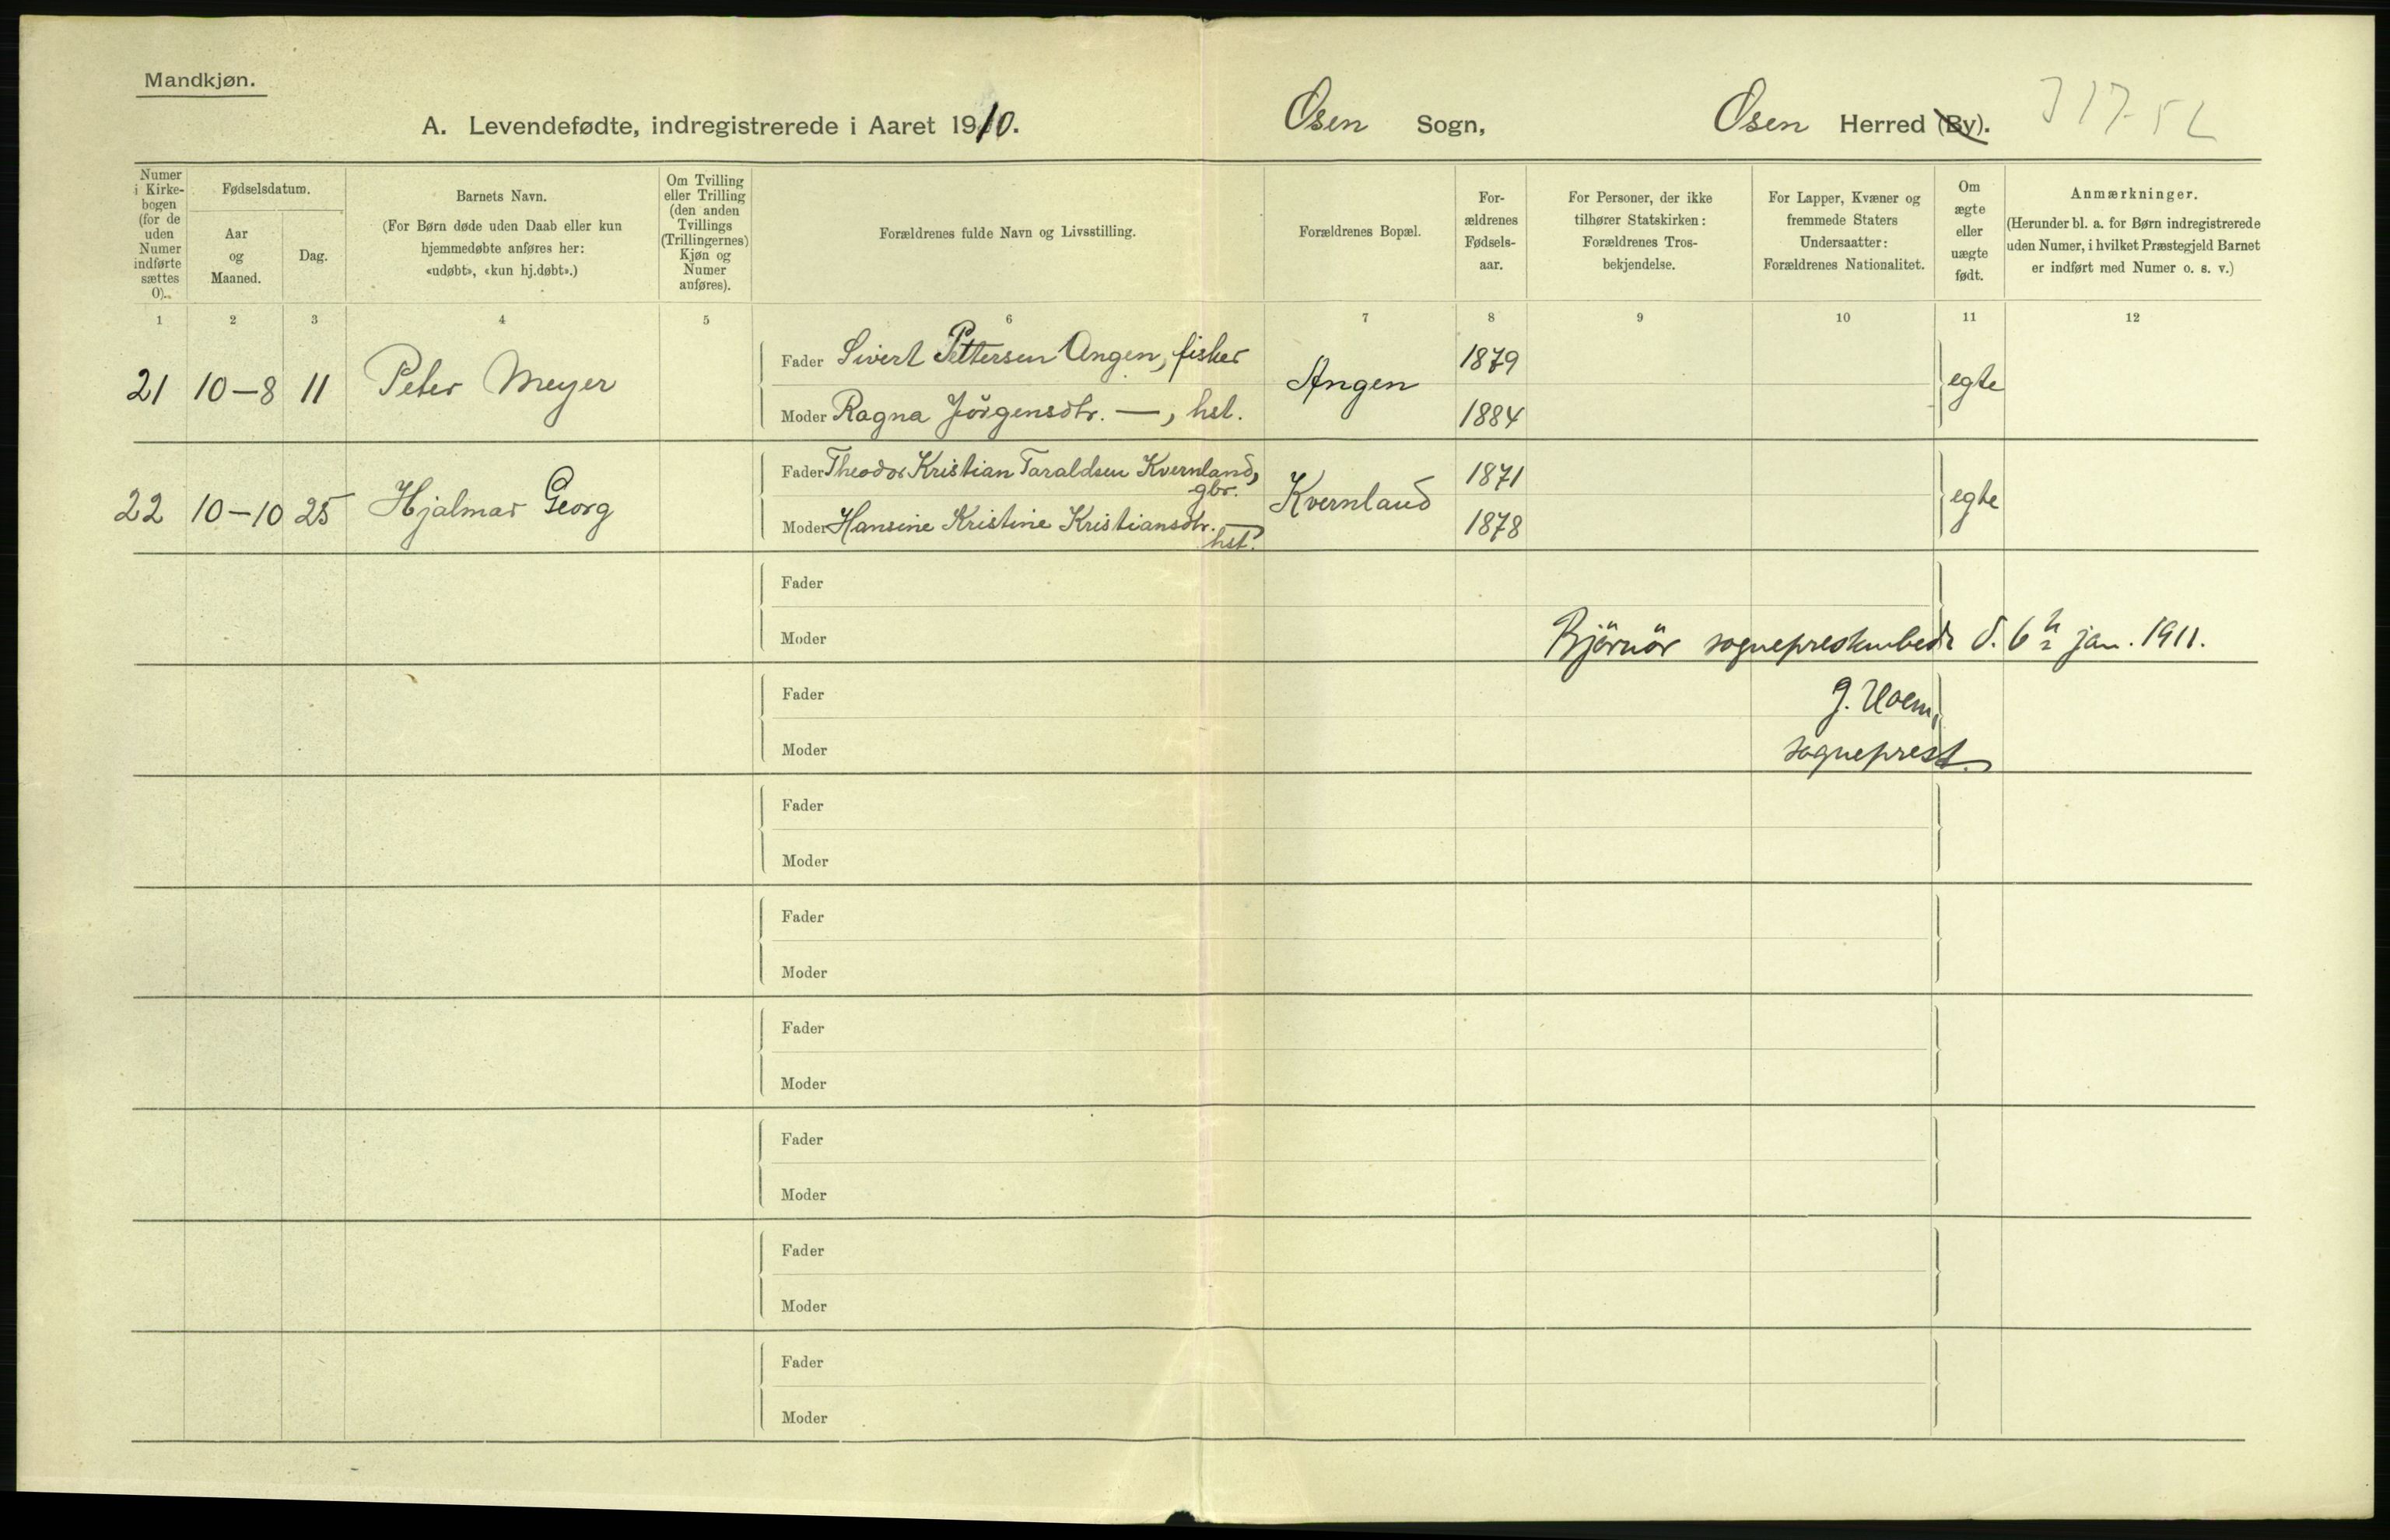 Mandkjøn.
A. Levendefødte, indregistrerede i Aaret 1910. Osen Sogn, Osen Herred (By).
Numer i Kirkebogen (for de uden Numer indførte sættes 0).
Fødselsdatum.
Aar og Maaned.
Dag.
Barnets Navn.
(For Børn døde uden Daab eller kun
hjemmedøbte anføres her:
«udøbt», «kun hj.døbt».)
Om Tvilling
eller Trilling
(den anden
Tvillings
(Trillingernes)
Kjøn og
Numer
anføres).
Forældrenes fulde Navn og Livsstilling.
Forældrenes Bopæl.
For-
ældrenes
Fødsels-
aar.
For Personer, der ikke
tilhører Statskirken:
Forældrenes Tros-
bekjendelse.
For Lapper, Kvæner og
fremmede Staters
Undersaatter:
Forældrenes Nationalitet.
Om
ægte
eller
uægte
født.
Anmærkninger.
(Herunder bl. a. for Børn indregistrerede
uden Numer, i hvilket Præstegjeld Barnet
er indført med Numer o. s. v.)
1 2 3 4 5 6 7 8 9 10 11 12
Fader Sivert Pettersen Angen, fisker 1879
21 10-8 11 Peter Meyer Angen egte
Moder Ragna Jörgensdtr. —, hst. 1884
Fader Theodor Kristian Taraldsen Kvernland, gbr. 1871
22 10-10 25 Hjalmar Georg Kvernland egte
Moder Hansine Kristine Kristiansdtr. — hst. 1878
Fader
Moder
Björnör sogneprestembede d. 6 jan. 1911.
Fader
J. Hoem,
Moder
sogneprest.
Fader
Moder
Fader
Moder
Fader
Moder
Fader
Moder
Fader
Moder
Fader
Moder